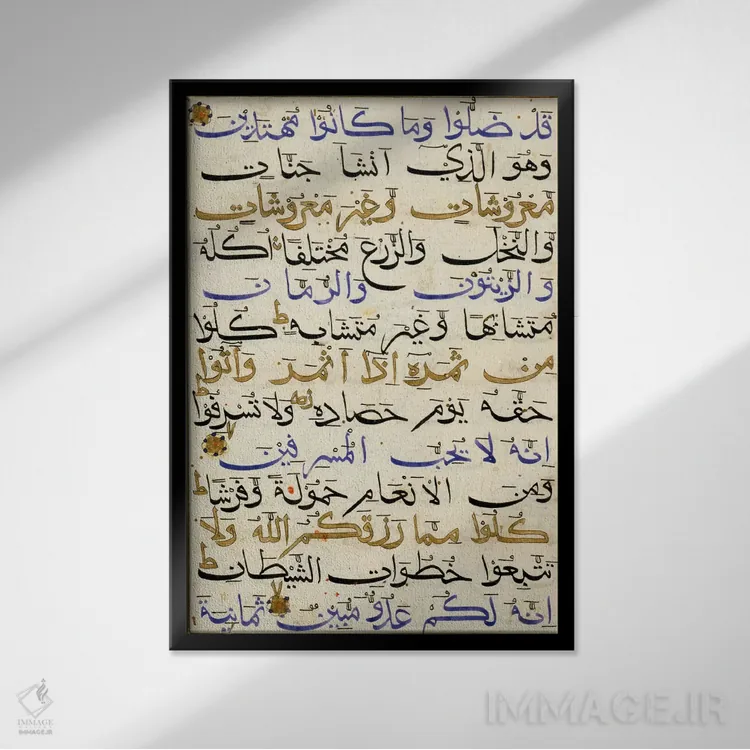 قد ضلوا وما كانوا مهتدين
وهو الذي انشا جنات
معروشات وغير معروشات
والنخل والزرع مختلفا اكله
والزيتون والرمان
متشابها وغير متشابه كلوا
من ثمره اذا اثمر واتوا
حقه يوم حصاده ولا تسرفوا
انه لا يحب المسرفين
ومن الانعام حمولة وفرشا
كلوا مما رزقكم الله ولا
تتبعوا خطوات الشيطان
انه لكم عدو مبين ثمانية
IMMAGE
IMMAGE.IR
IMMAGE.IR